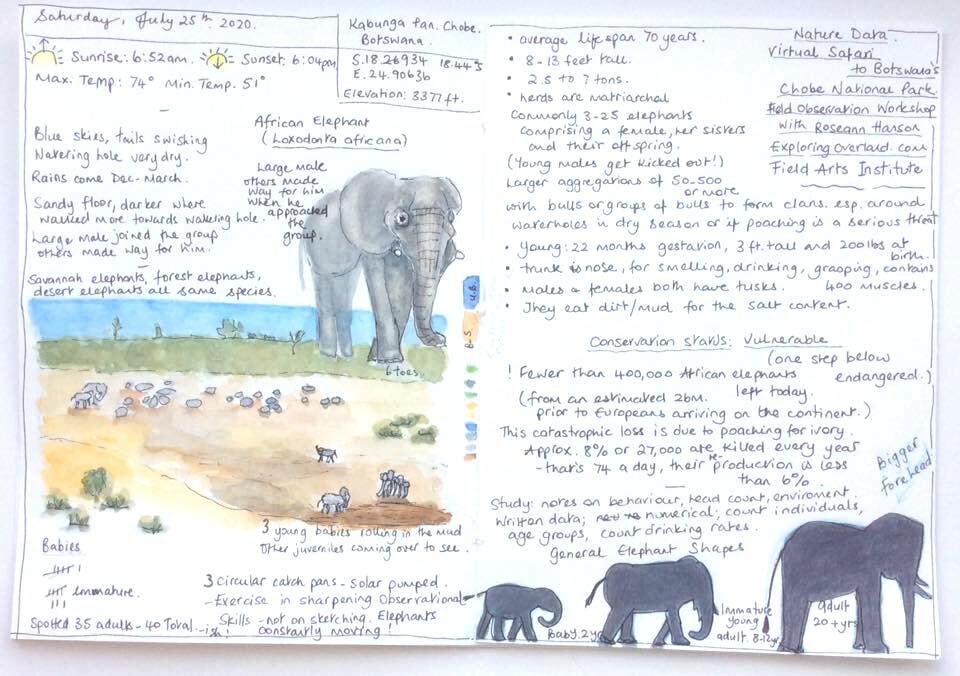 Saturday, July 25th 2020.
Kabunga Pan, Chobe.
Botswana.
S.18.26934 18.44°S
E.24.90636
Elevation: 3377ft.
Sunrise: 6:52am.
Sunset: 6:04pm
Max. Temp: 74° Min. Temp. 51°
Blue skies, tails swishing
Watering hole very dry.
Rains come Dec-March.
Sandy floor, darker where
walked more towards watering hole.
Large male joined the group
others made way for him.
Savannah elephants, forest elephants,
desert elephants all same species.
African Elephant
(Loxodonta africana)
Large male
others made
way for him
when he
approached
the
group.
U.B.
B-S
6 toes.
3 young babies rolling in the mud
other juveniles coming over to see.
Babies
Immature.
Spotted 35 adults - 40 Total -ish!
3 circular catch pans - solar pumped.
- Exercise in sharpening Observational
Skills - not on sketching. Elephants
constantly moving!
• average lifespan 70 years.
• 8-13 feet tall.
• 2.5 to 7 tons.
• herds are matriarchal
Commonly 3-25 elephants
comprising a female, her sisters
and their offspring.
(Young males get kicked out!)
Larger aggregations of 50-500
or more
with bulls or groups of bulls to form clans. esp. around
waterholes in dry season or if poaching is a serious threat
• Young: 22 months gestation, 3 ft. tall and 200 lbs at
birth.
• trunk is nose, for smelling, drinking, grasping, contains
400 muscles.
• Males & females both have tusks.
• They eat dirt/mud for the salt content.
Nature Data.
Virtual Safari
to Botswana's
Chobe National Park.
Field Observation Workshop
with Roseann Hanson
Exploring overland.com
Field Arts Institute
Conservation status: Vulnerable
(one step below
endangered.)
! Fewer than 400,000 African elephants
left today.
(from an estimated 26m.
prior to Europeans arriving on the continent.)
This catastrophic loss is due to poaching for ivory.
Approx. 8% or 27,000 are killed every year
- that's 74 a day, their re-production is less
than 6%.
Study: notes on behaviour, head count, enviroment.
Written data; numerical; count individuals,
age groups, count drinking rates.
General Elephant Shapes
Bigger
forehead
Baby. 2yr
Immature
young
adult. 8-12yr
adult
20+yrs